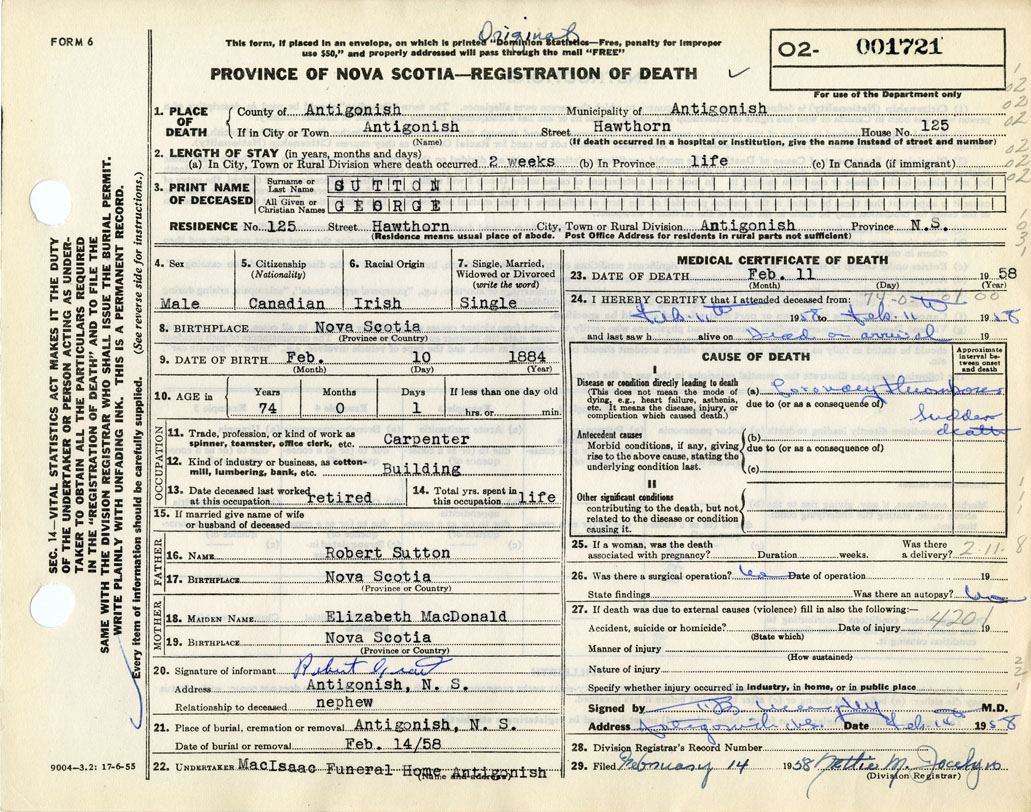 FORM 6
Original
This form, if placed in an envelope, on which is printed "Dominion Statistics—Free, penalty for improper
use $50," and properly addressed will pass through the mail "FREE"
PROVINCE OF NOVA SCOTIA—REGISTRATION OF DEATH
02- 001721
For use of the Department only
1. PLACE OF DEATH County of Antigonish Municipality of Antigonish
If in City or Town Antigonish Street Hawthorn House No. 125
(Name) (If death occurred in a hospital or institution, give the name instead of street and number)
2. LENGTH OF STAY (in years, months and days)
(a) In City, Town or Rural Division where death occurred 2 weeks (b) In Province life (c) In Canada (if immigrant)
3. PRINT NAME OF DECEASED
Surname or Last Name SUTTON
All Given or Christian Names GEORGE
RESIDENCE No. 125 Street Hawthorn City, Town or Rural Division Antigonish Province N.S.
(Residence means usual place of abode. Post Office Address for residents in rural parts not sufficient)
SEC. 14—VITAL STATISTICS ACT MAKES IT THE DUTY
OF THE UNDERTAKER OR PERSON ACTING AS UNDER-
TAKER TO OBTAIN ALL THE PARTICULARS REQUIRED
IN THE "REGISTRATION OF DEATH" AND TO FILE THE
SAME WITH THE DIVISION REGISTRAR WHO SHALL ISSUE THE BURIAL PERMIT.
WRITE PLAINLY WITH UNFADING INK. THIS IS A PERMANENT RECORD.
Every item of information should be carefully supplied. (See reverse side for instructions.)
4. Sex Male
5. Citizenship (Nationality) Canadian
6. Racial Origin Irish
7. Single, Married, Widowed or Divorced (write the word) Single
8. BIRTHPLACE Nova Scotia
(Province or Country)
9. DATE OF BIRTH Feb. 10 1884
(Month) (Day) (Year)
10. AGE in Years Months Days If less than one day old
74 0 1 hrs. or min.
OCCUPATION
11. Trade, profession, or kind of work as spinner, teamster, office clerk, etc. Carpenter
12. Kind of industry or business, as cotton-mill, lumbering, bank, etc. Building
13. Date deceased last worked at this occupation retired
14. Total yrs. spent in this occupation life
15. If married give name of wife or husband of deceased
FATHER
16. NAME Robert Sutton
17. BIRTHPLACE Nova Scotia
(Province or Country)
MOTHER
18. MAIDEN NAME Elizabeth MacDonald
19. BIRTHPLACE Nova Scotia
(Province or Country)
20. Signature of informant Robert
Address Antigonish, N. S.
Relationship to deceased nephew
21. Place of burial, cremation or removal Antigonish, N. S.
Date of burial or removal Feb. 14/58
22. UNDERTAKER MacIsaac Funeral Home Antigonish
(Name and address)
9004-3.2: 17-6-55
MEDICAL CERTIFICATE OF DEATH
23. DATE OF DEATH Feb. 11 1958
(Month) (Day) (Year)
24. I HEREBY CERTIFY that I attended deceased from:
Feb. 11th 1958 to Feb. 11 1958
and last saw h alive on Dead on arrival
CAUSE OF DEATH
Approximate interval between onset and death
I
Disease or condition directly leading to death
(This does not mean the mode of dying, e.g., heart failure, asthenia, etc. It means the disease, injury, or complication which caused death.)
(a) Coronary thrombosis
due to (or as a consequence of)
Sudden death
Antecedent causes
Morbid conditions, if any, giving rise to the above cause, stating the underlying condition last.
(b)
due to (or as a consequence of)
(c)
II
Other significant conditions
contributing to the death, but not related to the disease or condition causing it.
25. If a woman, was the death associated with pregnancy? Duration weeks. Was there a delivery?
2-11-8
26. Was there a surgical operation? no Date of operation 19
State findings Was there an autopsy? no
27. If death was due to external causes (violence) fill in also the following:—
4201
Accident, suicide or homicide? Date of injury 19
(State which)
Manner of injury
(How sustained)
Nature of injury
Specify whether injury occurred in industry, in home, or in public place
Signed by M.D.
Address Antigonish N.S. Date Feb. 14th 1958
28. Division Registrar's Record Number
29. Filed February 14 1958 Nettie M. Jocelyn
(Division Registrar)